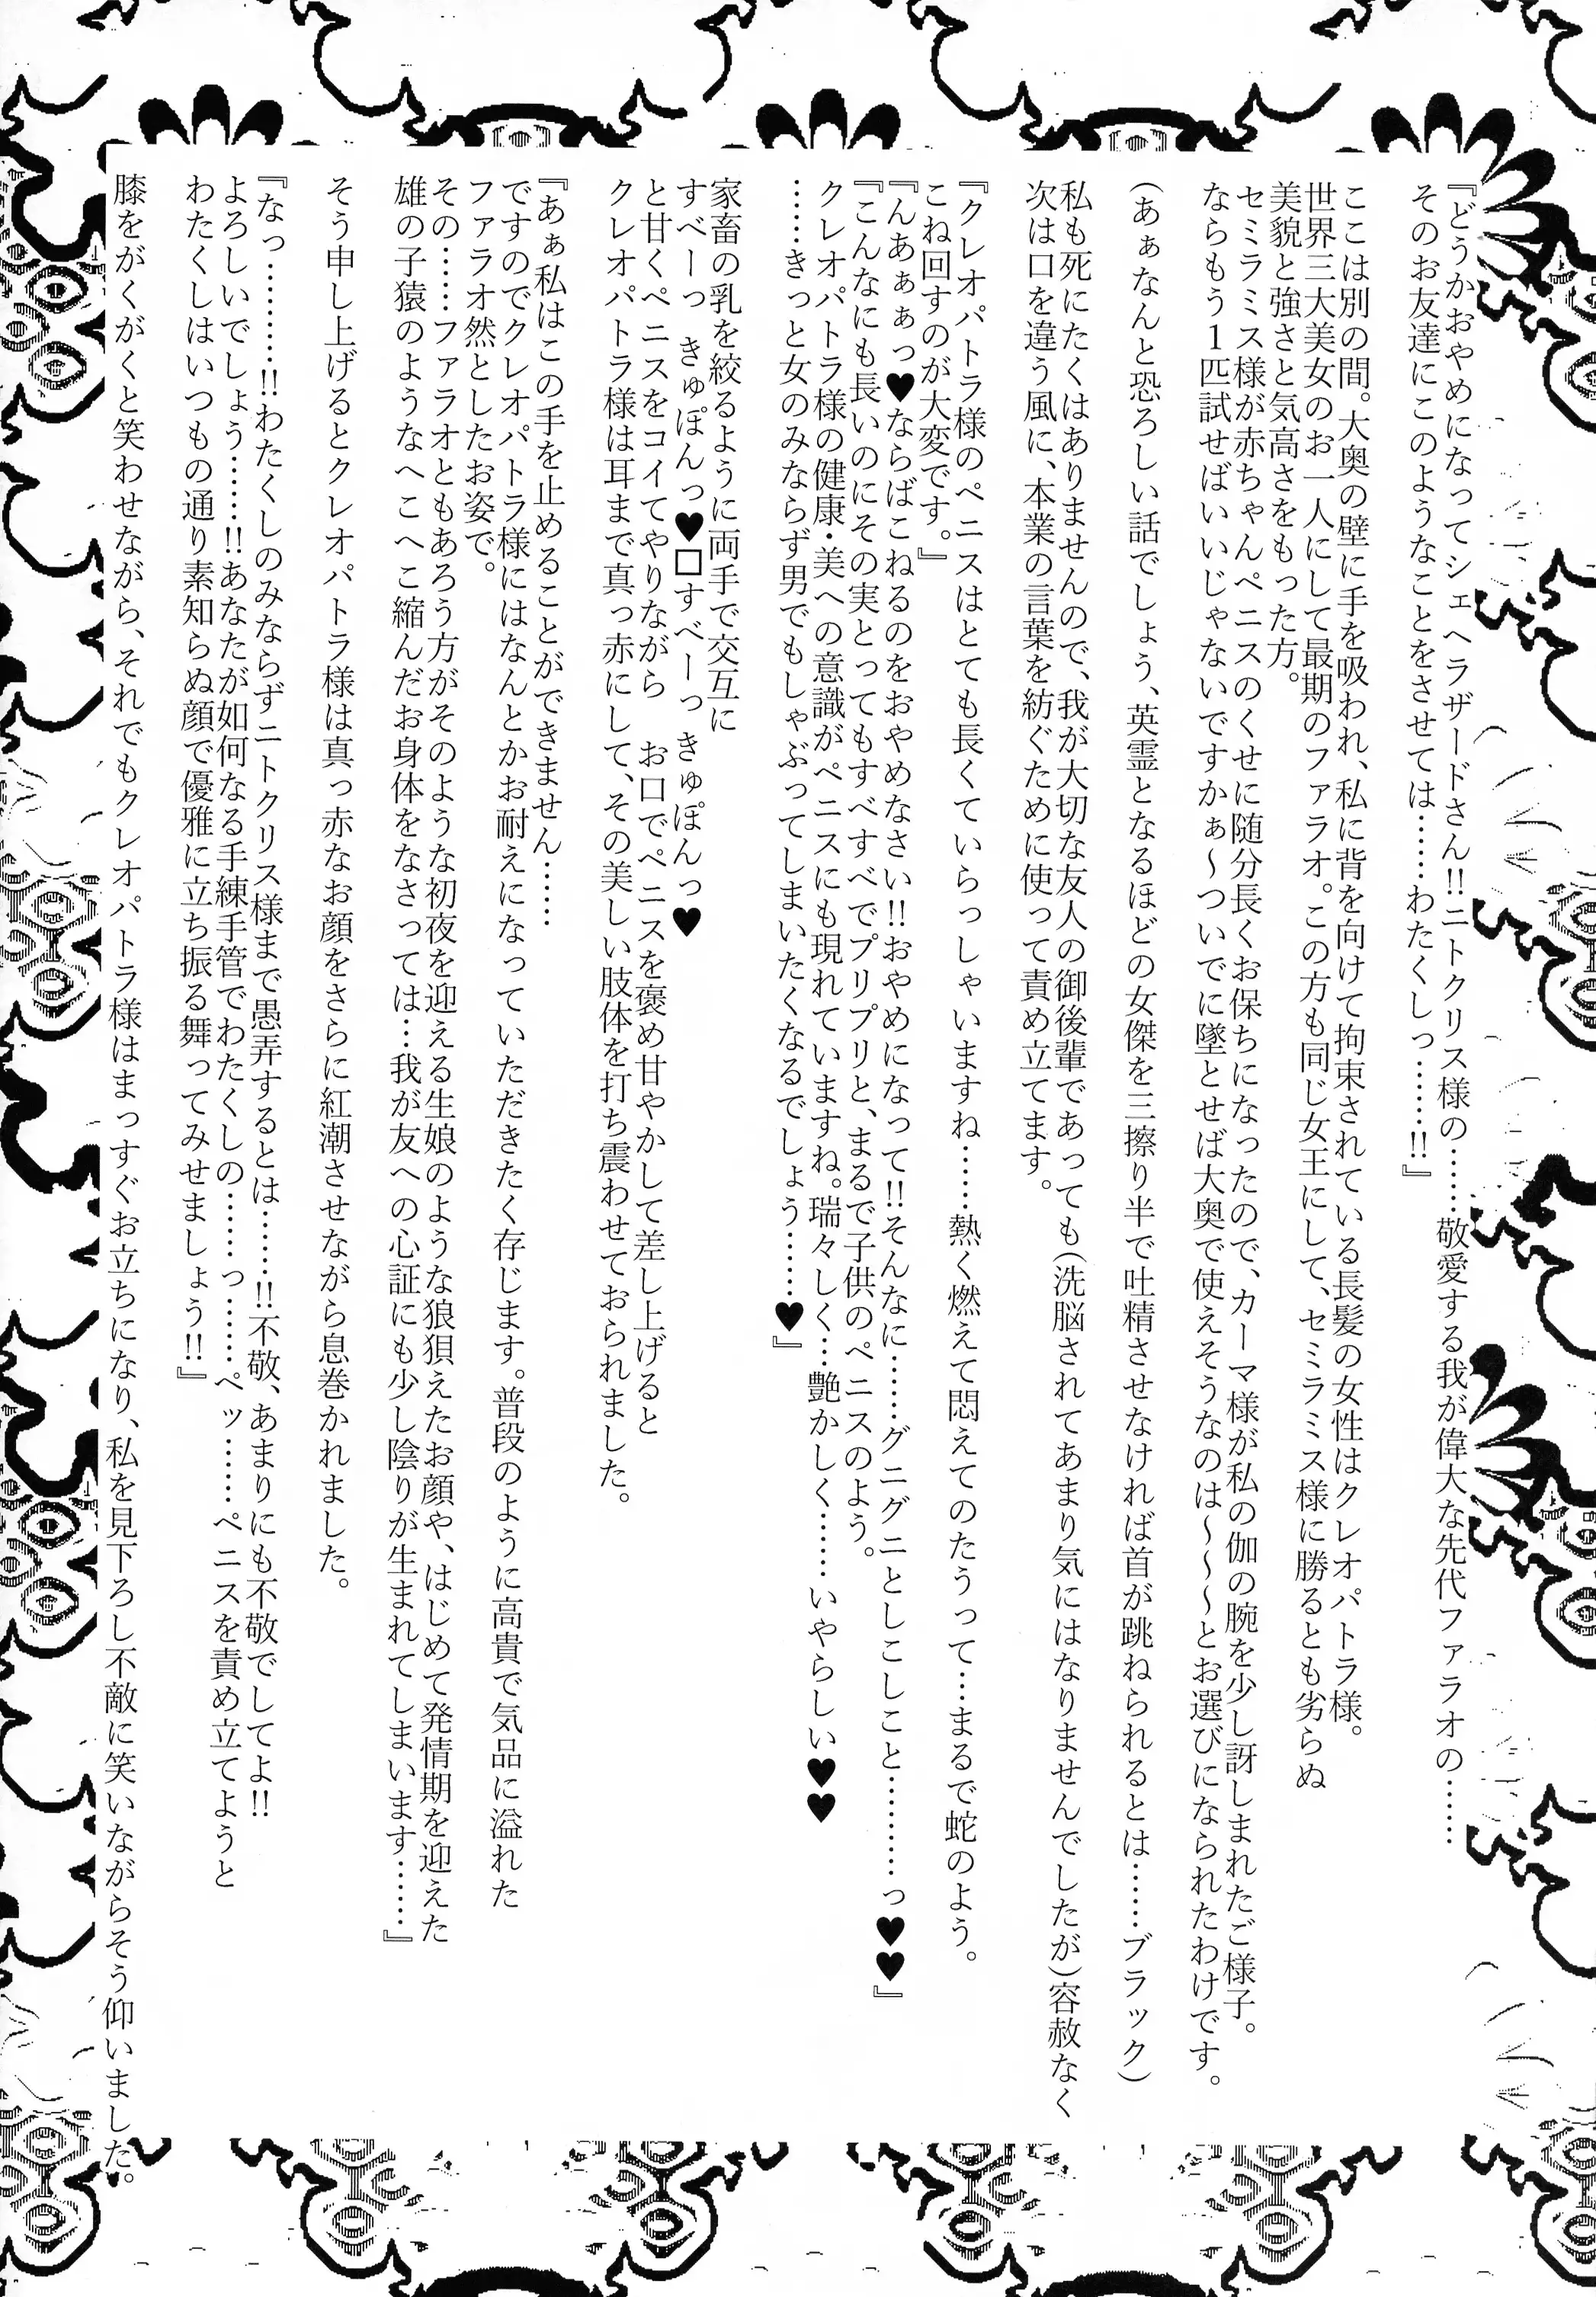 『どうかおやめになってシェヘラザードさん!!ニトクリス様の……敬愛する我が偉大な先代ファラオの……
そのお友達にこのようなことをさせては……わたくしっ……!!』
ここは別の間。大奥の壁に手を吸われ、私に背を向けて拘束されている長髪の女性はクレオパトラ様。
世界三大美女のお一人にして最期のファラオ。この方も同じ女王にして、セミラミス様に勝るとも劣らぬ
美貌と強さと気高さをもった方。
セミラミス様が赤ちゃんペニスのくせに随分長くお保ちになったので、カーマ様が私の伽の腕を少し訝しまれたご様子。
ならもう1匹試せばいいじゃないですかぁ～ついでに墜とせば大奥で使えそうなのは～～～とお選びになられたわけです。
(あぁなんと恐ろしい話でしょう、英霊となるほどの女傑を三擦り半で吐精させなければ首が跳ねられるとは……ブラック)
私も死にたくはありませんので、我が大切な友人の御後輩であっても(洗脳されてあまり気にはなりませんでしたが)容赦なく
次は口を違う風に、本業の言葉を紡ぐために使って責め立てます。
『クレオパトラ様のペニスはとても長くていらっしゃいますね……熱く燃えて悶えてのたうって…まるで蛇のよう。
こね回すのが大変です。』
『んあぁぁっ♥ならばこねるのをおやめなさい!!おやめになって!!そんなに……グニグニとしこしこと………っ♥♥』
『こんなにも長いのにその実とってもすべすべでプリプリと、まるで子供のペニスのよう。
クレオパトラ様の健康・美への意識がペニスにも現れていますね。瑞々しく…艶かしく……いやらしい♥♥
……きっと女のみならず男でもしゃぶってしまいたくなるでしょう……♥』
家畜の乳を絞るように両手で交互に
すべーっ　きゅぽんっ♥□すべーっ　きゅぽんっ♥
と甘くペニスをコイてやりながら　お口でペニスを褒め甘やかして差し上げると
クレオパトラ様は耳まで真っ赤にして、その美しい肢体を打ち震わせておられました。
『あぁ私はこの手を止めることができません……
ですのでクレオパトラ様にはなんとかお耐えになっていただきたく存じます。普段のように高貴で気品に溢れた
ファラオ然としたお姿で。
その……ファラオともあろう方がそのような初夜を迎える生娘のような狼狽えたお顔や、はじめて発情期を迎えた
雄の子猿のようなへこへこ縮んだお身体をなさっては…我が友への心証にも少し陰りが生まれてしまいます……』
そう申し上げるとクレオパトラ様は真っ赤なお顔をさらに紅潮させながら息巻かれました。
『なっ………!!わたくしのみならずニトクリス様まで愚弄するとは……!!不敬、あまりにも不敬でしてよ!!
よろしいでしょう……!!あなたが如何なる手練手管でわたくしの……っ……ペッ……ペニスを責め立てようと
わたくしはいつもの通り素知らぬ顔で優雅に立ち振る舞ってみせましょう!!』
膝をがくがくと笑わせながら、それでもクレオパトラ様はまっすぐお立ちになり、私を見下ろし不敵に笑いながらそう仰いました。